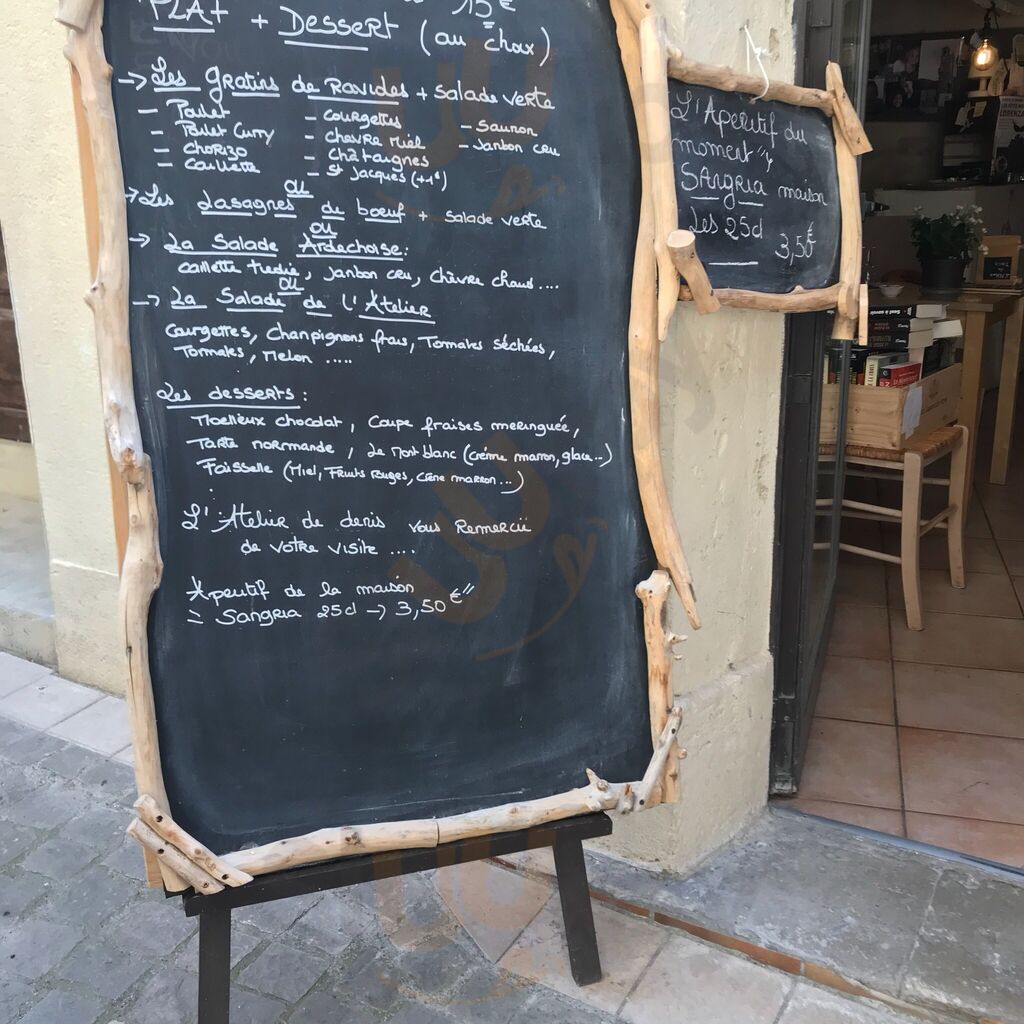 15€
PLAT + Dessert (au choix)
-> Les Gratins de Ravioles + Salade verte
- Poulet - courgettes - Saumon
- Poulet Curry - chèvre miel - Jambon cru
- CHORIZO - Châtaignes
- Caillette - St Jacques (+1€)
ou
-> Les Lasagnes de bœuf + salade verte
ou
-> La Salade Ardéchoise:
caillette tiède, Jambon cru, Chèvre chaud....
ou
-> La Salade de L'Atelier
Courgettes, Champignons frais, Tomates Séchées,
Tomates, Melon .....
Les desserts:
Moelleux chocolat, Coupe fraises meringuée,
Tarte normande, Le Mont blanc (crème marron, glace...)
Faisselle (Miel, Fruits Rouges, Crème marron...)
L'Atelier de denis vous Remercie
de votre visite ....
Aperitif de la maison
= Sangria 25cl -> 3,50€"
L'Apéritif du
moment "
SANGRIA maison
Les 25cl
3,50€